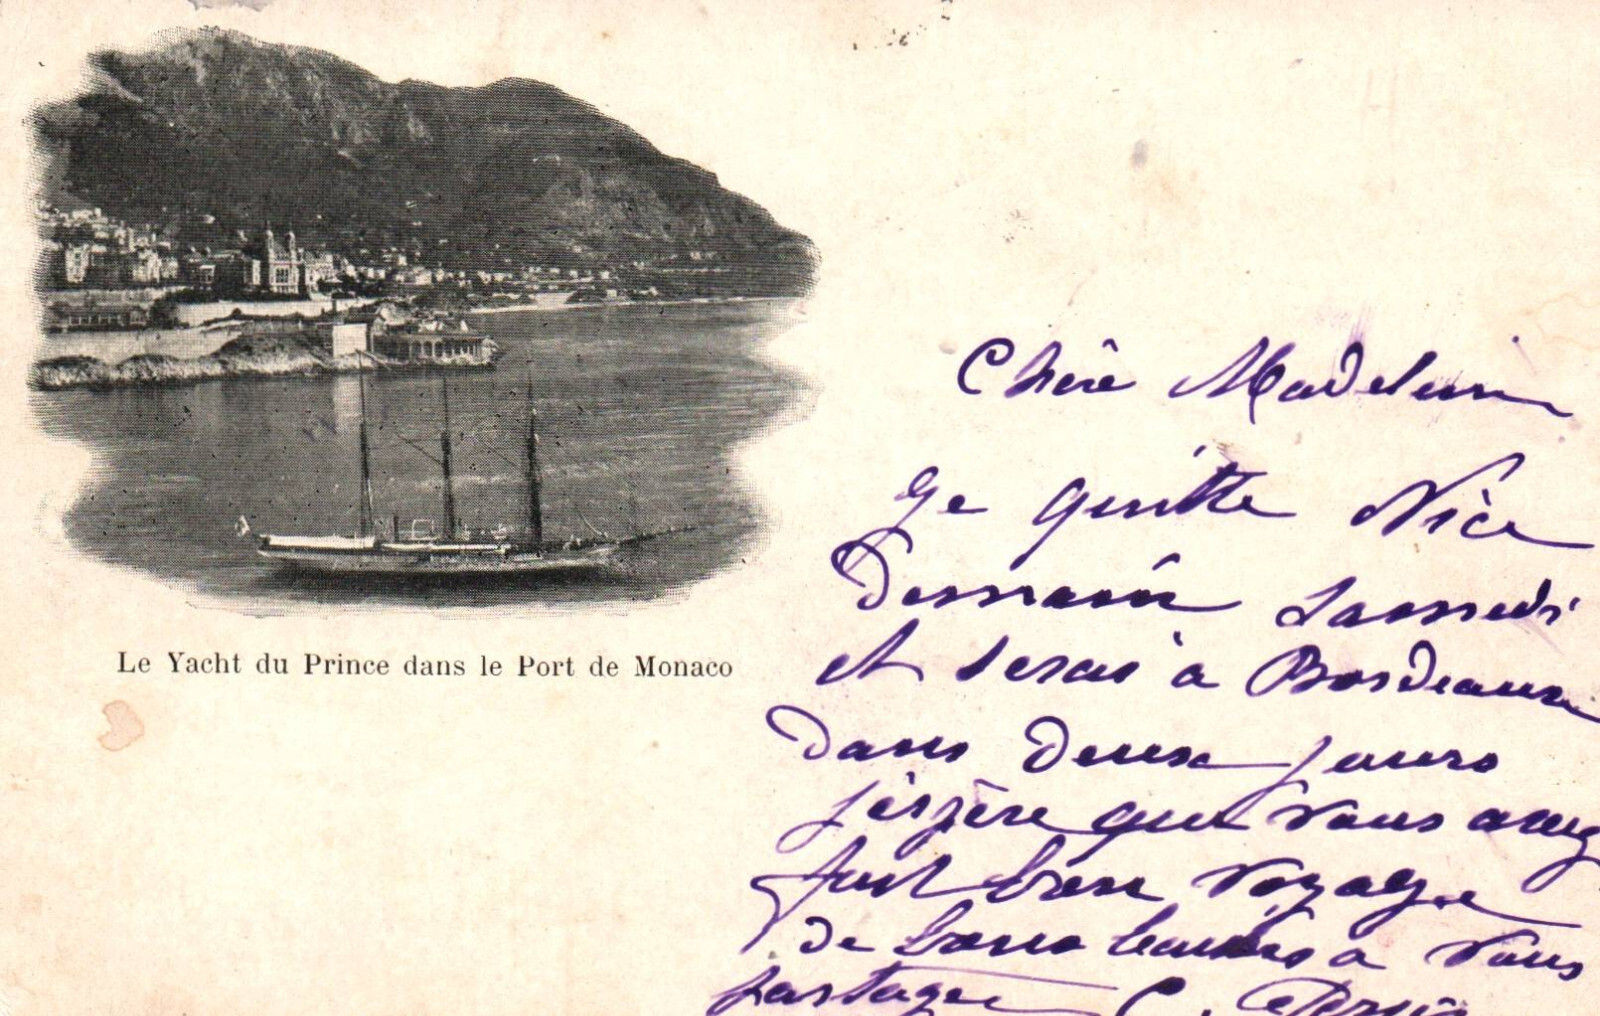 Le Yacht du Prince dans le Port de Monaco
Chère Madeleine
Je quitte Nice
Demain Samedi
et serai à Bordeaux
dans deux jours
j'espère que vous avez
fait bon voyage
de bons baisers a vous
partager C.